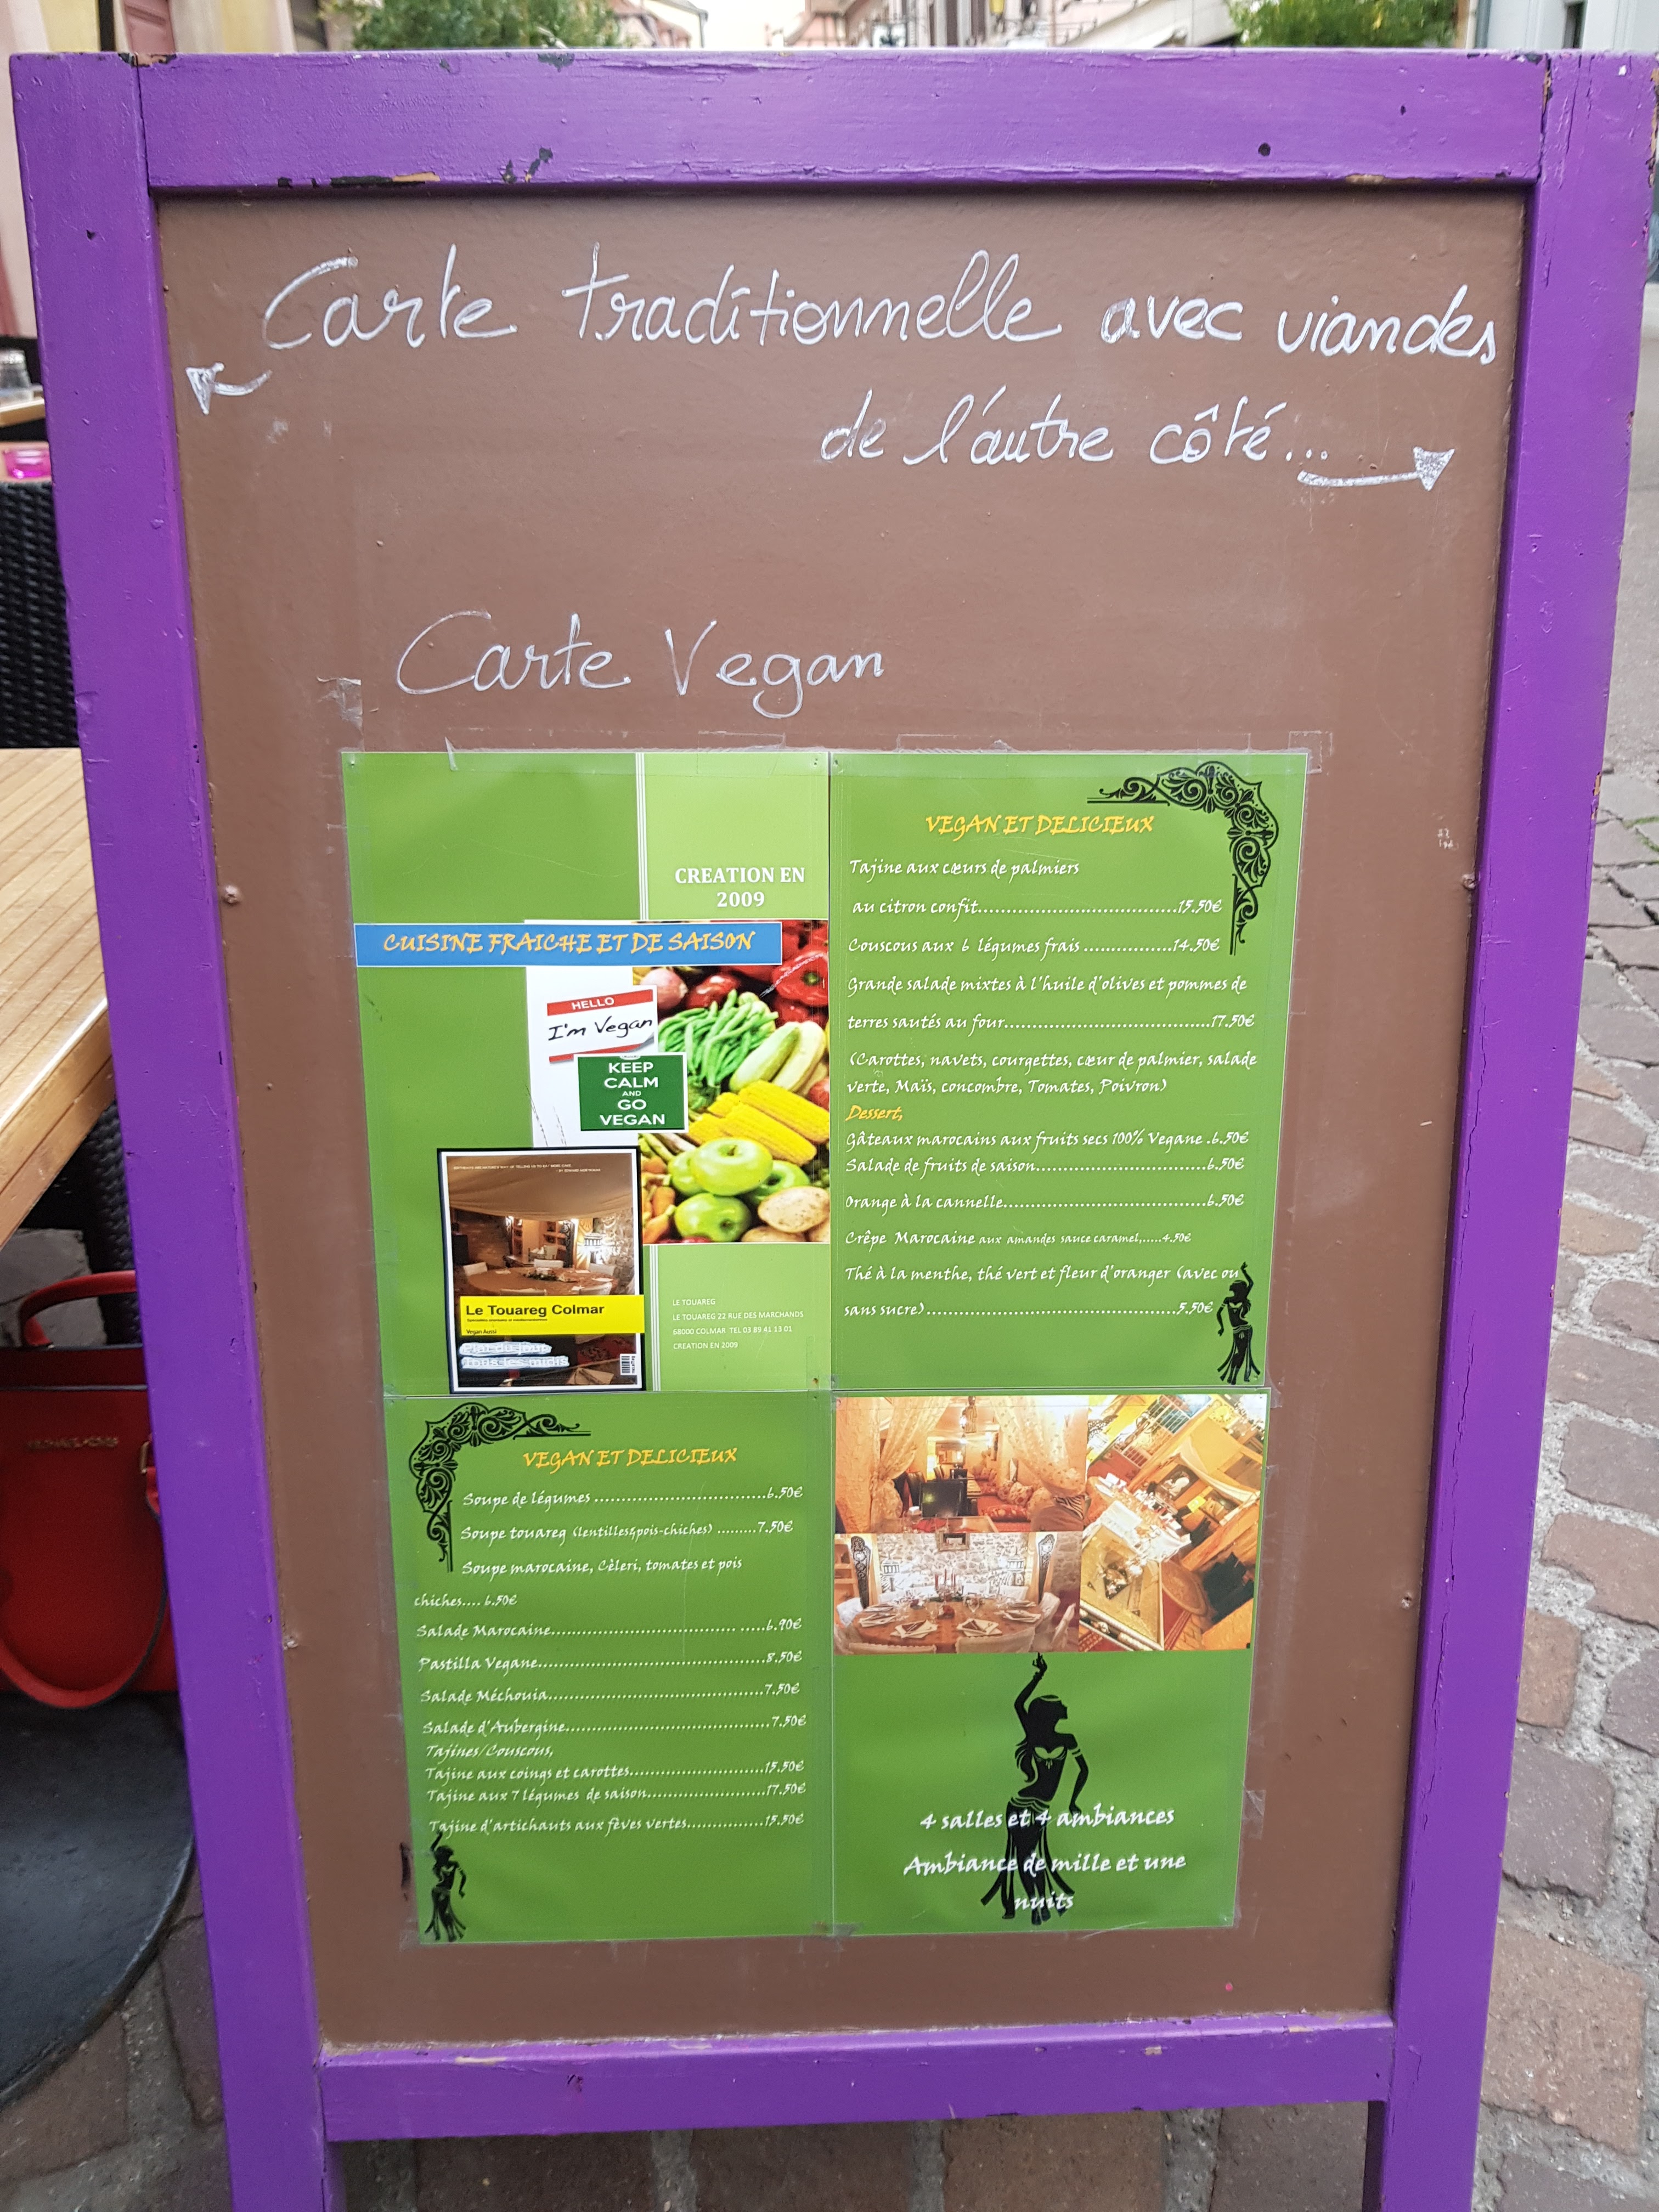 Carte traditionnelle avec viandes
de l'autre côté...
Carte Vegan
CREATION EN
2009
CUISINE FRAICHE ET DE SAISON
HELLO
I'm Vegan
KEEP
CALM
AND
GO
VEGAN
Le Touareg Colmar
Vegan Aussi
Plat du jour
tous les midis
LE TOUAREG
LE TOUAREG 22 RUE DES MARCHANDS
68000 COLMAR TEL 03 89 41 13 01
CREATION EN 2009
VEGAN ET DELICIEUX
Tajine aux cœurs de palmiers
au citron confit....................................15.50€
Couscous aux 6 légumes frais ................14.50€
Grande salade mixtes à l'huile d'olives et pommes de
terres sautés au four.....................................17.50€
(Carottes, navets, courgettes, cœur de palmier, salade
verte, Maïs, concombre, Tomates, Poivron)
Dessert,
Gâteaux marocains aux fruits secs 100% Vegane .6.50€
Salade de fruits de saison...............................6.50€
Orange à la cannelle.....................................6.50€
Crêpe Marocaine aux amandes sauce caramel,.....4.50€
Thé à la menthe, thé vert et fleur d'oranger (avec ou
sans sucre).............................................5.50€
VEGAN ET DELICIEUX
Soupe de légumes ...............................6.50€
Soupe touareg (lentilles&pois-chiches) .........7.50€
Soupe marocaine, Cèleri, tomates et pois
chiches.... 6.50€
Salade Marocaine................................. .....6.90€
Pastilla Vegane.........................................8.50€
Salade Méchouia.......................................7.50€
Salade d'Aubergine.....................................7.50€
Tajines/Couscous,
Tajine aux coings et carottes........................15.50€
Tajine aux 7 légumes de saison.....................17.50€
Tajine d'artichauts aux fèves vertes..............15.50€
4 salles et 4 ambiances
Ambiance de mille et une
nuits